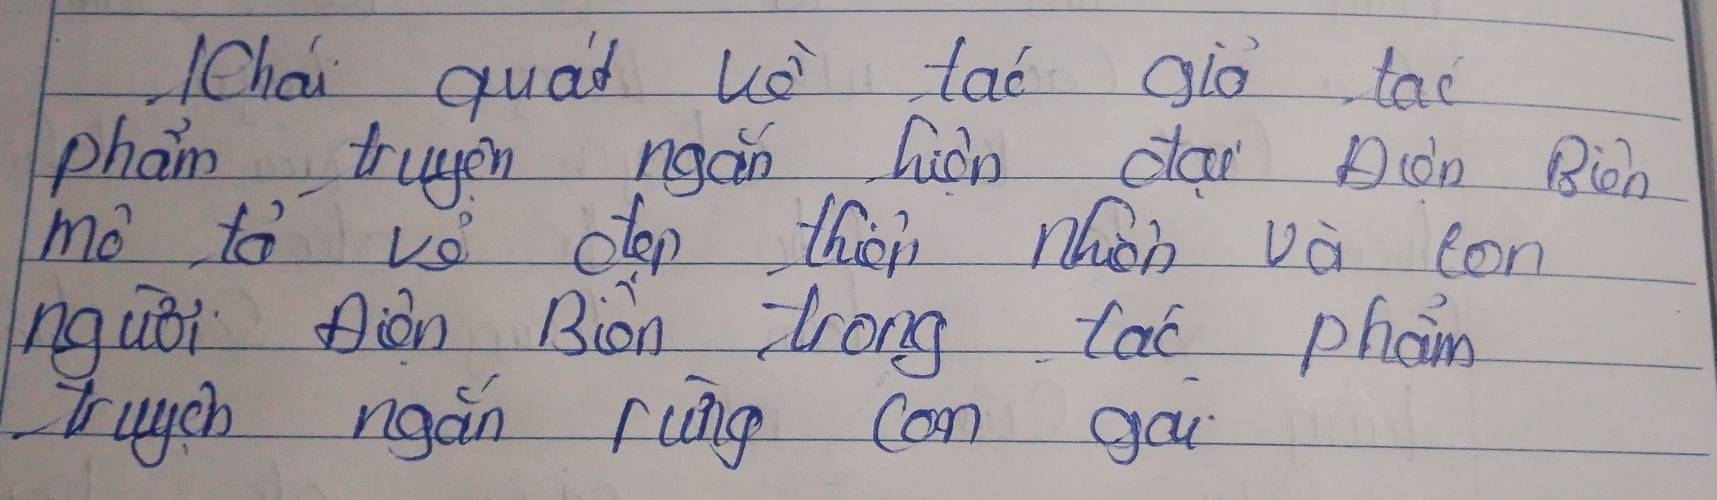 Khái quát về tác giả tác
phẩm truyện ngắn hiện đại Điện Biên
mô tả vẻ đẹp thiên nhiên và con
người Điện Biên trong tác phẩm
truyện ngắn rừng con gái